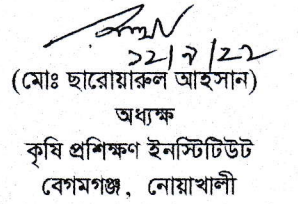 ১২/৭/২২
(মোঃ ছারোয়ারুল আহসান)
অধ্যক্ষ
কৃষি প্রশিক্ষণ ইনস্টিটিউট
বেগমগঞ্জ, নোয়াখালী